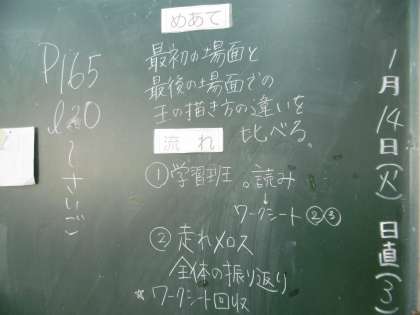 めあて
最初の場面と
最後の場面での
王の描き方の違いを
比べる。
流れ
①学習班 。読み
↓
ワークシート②③
②走れメロス
全体の振り返り
☆ワークシート回収
P165
l20
〜さいご
1月14日(火) 日直(3)